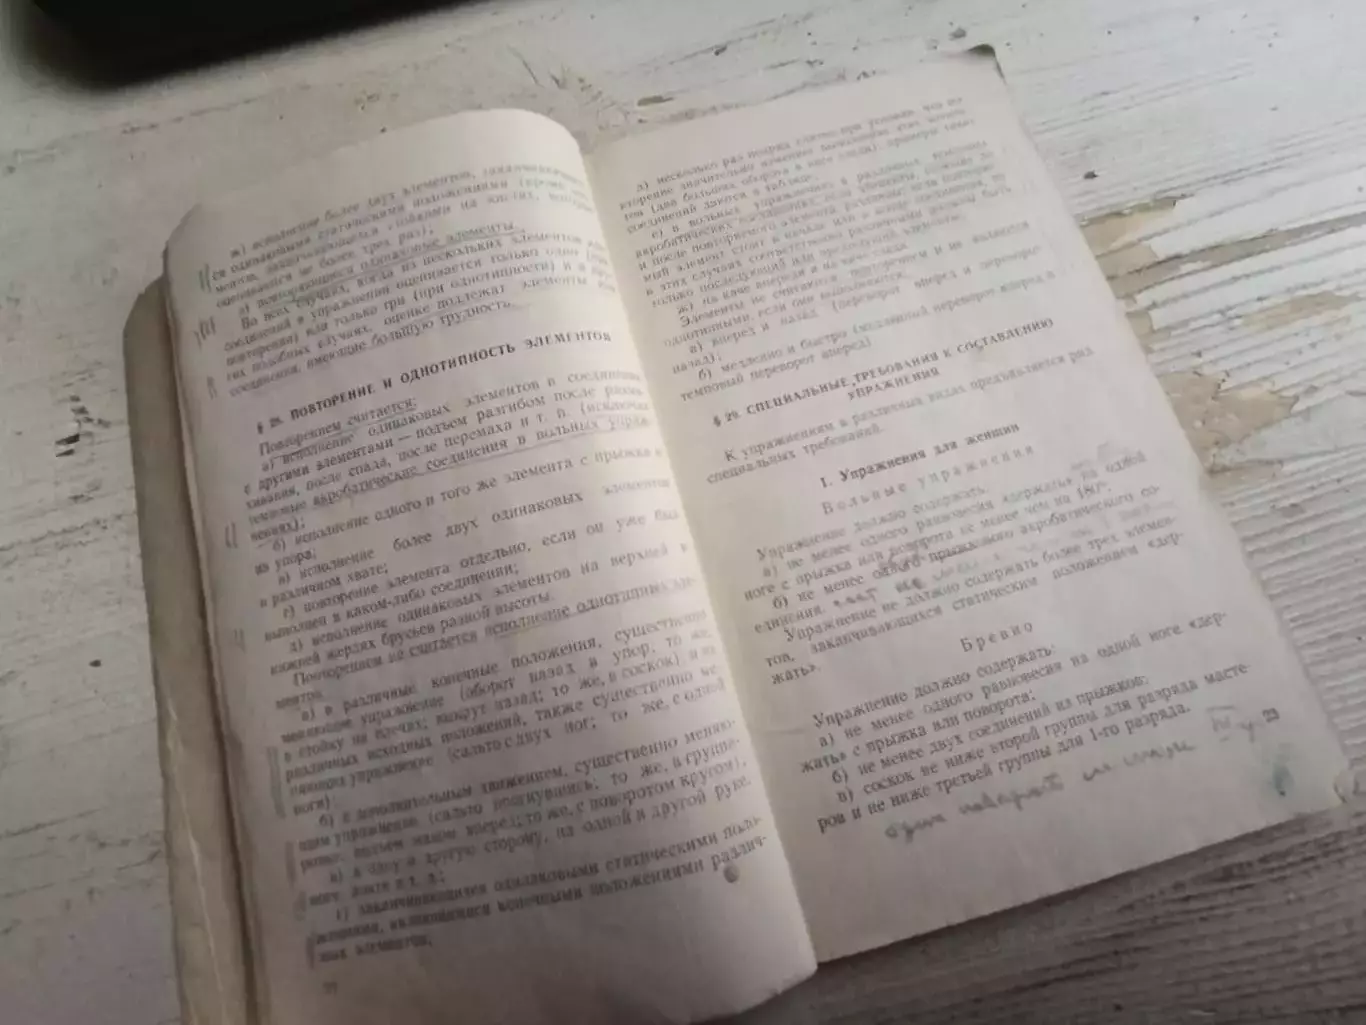 ж) исполнение более двух элементов, заканчивающих-
ся одинаковыми статическими положениями (кроме
ментов, заканчивающихся стойками на кистях, которые
оцениваются не более трех раз);
з) повторяющиеся одинаковые элементы.
Во всех случаях, когда из нескольких элементов или
соединений в упражнении оценивается только одно (при
повторении) или только три (при однотипности) и в дру-
гих подобных случаях, оценке подлежат элементы или
соединения, имеющие большую трудность.
§ 28. ПОВТОРЕНИЕ И ОДНОТИПНОСТЬ ЭЛЕМЕНТОВ
Повторением считается:
а) исполнение одинаковых элементов в соединении
с другими элементами — подъем разгибом после разги-
бания, после спада, после перемаха и т. п. (исключая
темповые акробатические соединения в вольных упраж-
нениях);
б) исполнение одного и того же элемента с прыжка и
из упора;
в) исполнение более двух одинаковых элементов
в различном хвате;
г) повторение элемента отдельно, если он уже был
выполнен в каком-либо соединении;
д) исполнение одинаковых элементов на верхней и
нижней жердях брусьев разной высоты.
Повторением не считается исполнение однотипных эле-
ментов:
а) в различные конечные положения, существенно
меняющие упражнение (оборот назад в упор; то же,
в стойку на плечах; выкрут назад; то же, в соскок) и из
различных исходных положений, также существенно ме-
няющих упражнение (сальто с двух ног; то же, с одной
ноги);
б) с дополнительным движением, существенно меняю-
щим упражнение (сальто прогнувшись; то же, в группи-
ровке; подъем махом вперед; то же, с поворотом кругом),
в) в одну и другую сторону, на одной и другой руке,
ноге, хвате и т. д.;
г) заканчивающихся одинаковыми статическими поло-
жениями, являющимися конечными положениями различ-
ных элементов;
д) несколько раз подряд слитно при условии, что
торение значительно
тов (два больших оборота и
соединений даются в таблице;
е) в вольных упражнениях в различных
акробатических соединениях,
и после повторяемого элемента
мый элемент стоит в начале или в конце соединения, то
в этих случаях соответственно различными должны быть
только последующий или предыдущий элементы;
ж) на каче впереди и на каче сзади.
Элементы не считаются повторением и не являются
однотипными, если они выполняются:
а) вперед и назад (переворот вперед и переворот
назад);
б) медленно и быстро (медленный переворот вперед и
темповый переворот вперед).
§ 29. СПЕЦИАЛЬНЫЕ ТРЕБОВАНИЯ К СОСТАВЛЕНИЮ
УПРАЖНЕНИЯ
К упражнениям в различных видах предъявляется ряд
специальных требований.
1. Упражнения для женщин
Вольные упражнения
Упражнение должно содержать:
а) не менее одного равновесия «держать» на одной
ноге с прыжка или поворота не менее чем на 180°;
б) не менее одного прыжкового акробатического со-
единения.
Упражнение не должно содержать более трех элемен-
тов, заканчивающихся статическим положением «дер-
жать».
Бревно
Упражнение должно содержать:
а) не менее одного равновесия на одной ноге «дер-
жать» с прыжка или поворота;
б) не менее двух соединений из прыжков;
в) соскок не ниже второй группы для разряда масте-
ров и не ниже третьей группы для 1-го разряда.
23